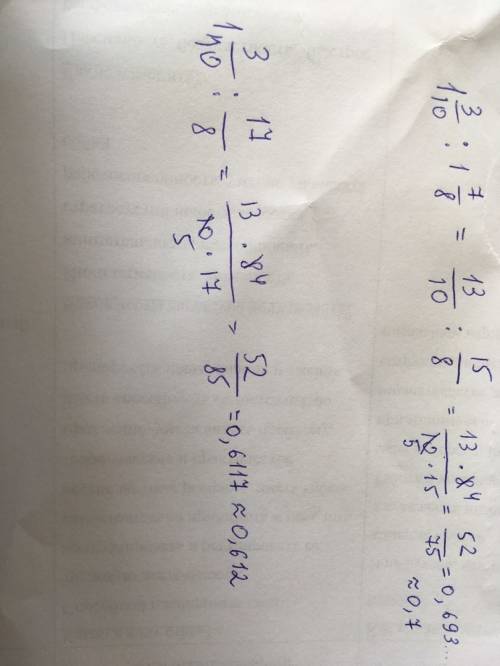 1 3/10 : 1 7/8 = 13/10 : 15/8 = 13 · 8 4 / 10 5 · 15 = 52/75 = 0,693... ≈ 0,7
1 3/10 : 17/8 = 13 · 8 4 / 10 5 · 17 = 52/85 = 0,6117 ≈ 0,612